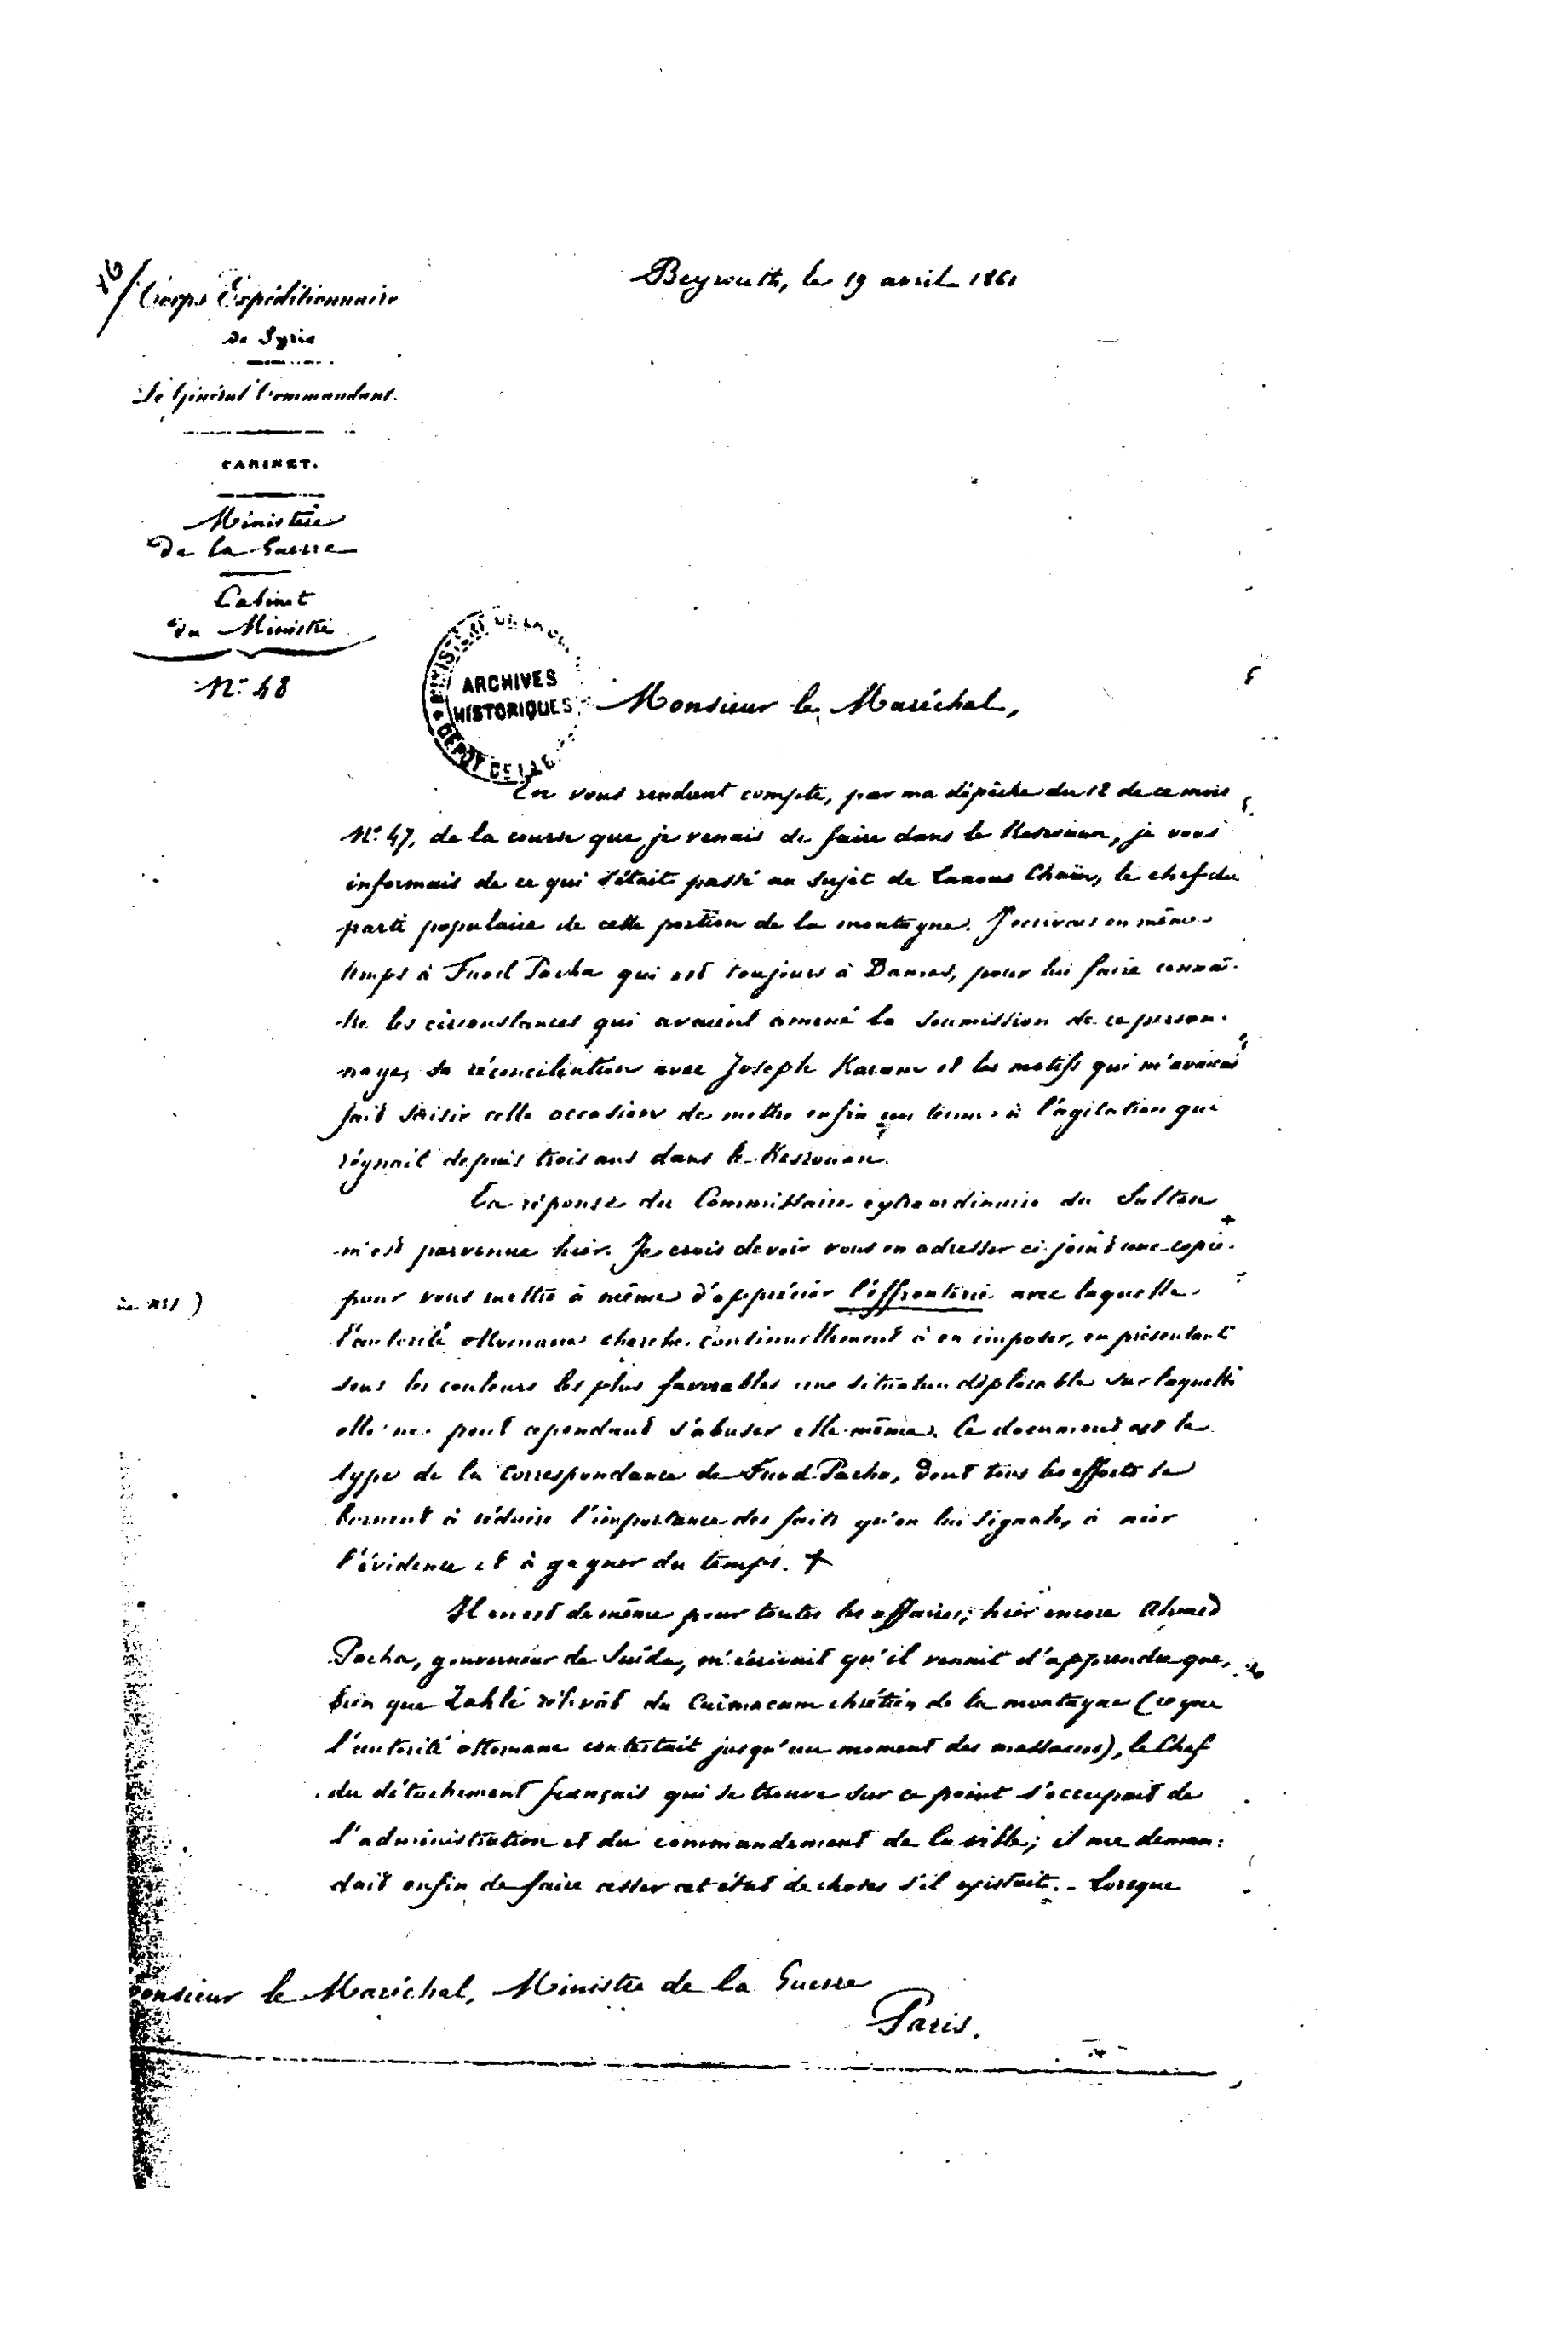 Beyrouth, le 19 avril 1861
Corps Expéditionnaire
de Syrie
Le Général Commandant.
CABINET.
Ministère
de la Guerre
Cabinet
du Ministre
N° 48
ARCHIVES
HISTORIQUES
Monsieur le Maréchal,
En vous rendant compte, par ma dépêche du 12 de ce mois
N° 47, de la course que je venais de faire dans le Kesrouan, je vous
informais de ce qui s'était passé au sujet de Tanous Chaïn, le chef du
parti populaire de cette portion de la montagne. J'écrivais en même
temps à Fuad Pacha qui est toujours à Damas, pour lui faire connaî-
tre les circonstances qui avaient amené la soumission de ce person-
nage, sa réconciliation avec Joseph Karam et les motifs qui m'avaient
fait saisir cette occasion de mettre enfin un terme à l'agitation qui
régnait depuis trois ans dans le Kesrouan.
La réponse du Commissaire extraordinaire du Sultan
m'est parvenue hier. Je crois devoir vous en adresser ci-joint une copie
pour vous mettre à même d'apprécier l'effronterie avec laquelle
l'autorité ottomane cherche continuellement à en imposer, en présentant
sous les couleurs les plus favorables une situation déplorable sur laquelle
elle ne peut cependant s'abuser elle-même. Ce document est le
type de la correspondance de Fuad Pacha, dont tous les efforts se
bornent à réduire l'importance des faits qu'on lui signale, à nier
l'évidence et à gagner du temps. +
Il en est de même pour toutes les affaires; hier encore Ahmed
Pacha, gouverneur de Saïda, m'écrivait qu'il venait d'apprendre que,
bien que Zahlé relevât du Caïmacam chrétien de la montagne (ce que
l'autorité ottomane contestait jusqu'au moment des massacres), le Chef
du détachement français qui se trouve sur ce point s'occupait de
l'administration et du commandement de la ville; il me deman-
dait enfin de faire cesser cet état de choses s'il existait. - Lorsque
Monsieur le Maréchal, Ministre de la Guerre
Paris.